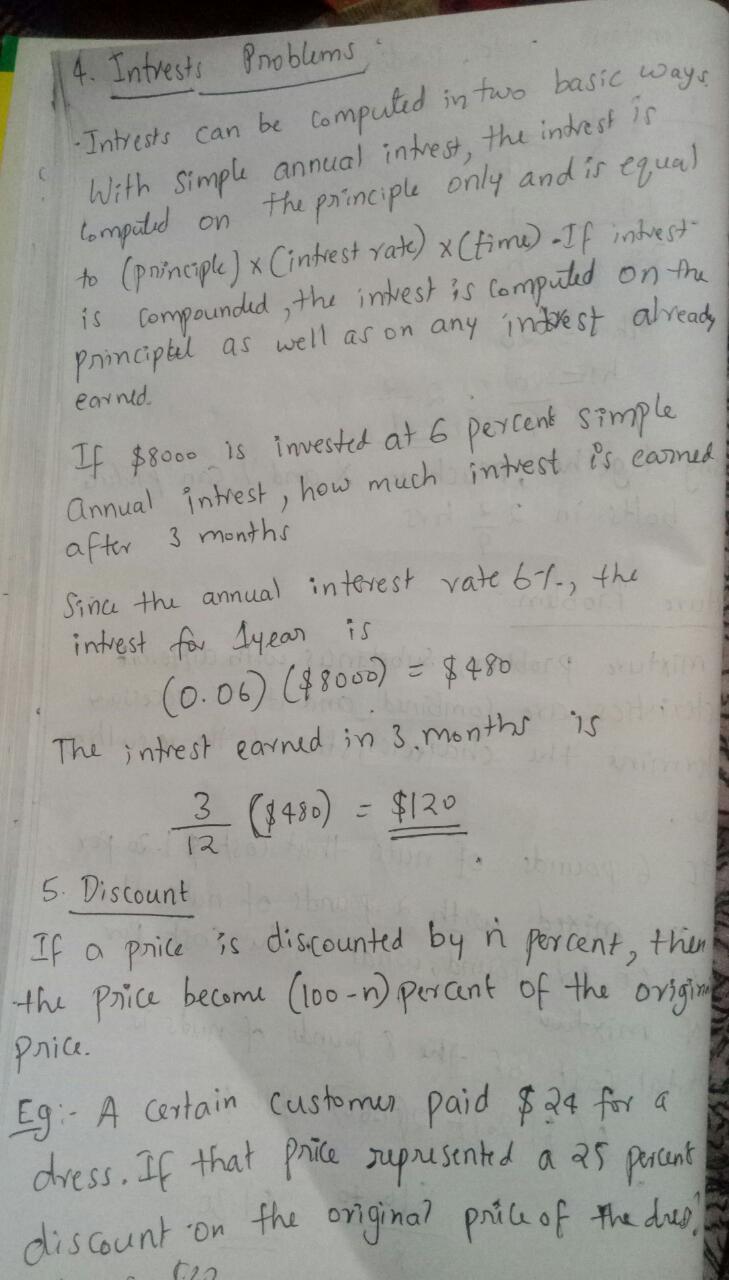 4. Intrests Problems
- Intrests can be computed in two basic ways.
With Simple annual intrest, the intrest is
computed on the principle only and is equal
to (principle) x (intrest rate) x (time) - If intrest
is compounded, the intrest is computed on the
principal as well as on any intrest already
earned.
If $8000 is invested at 6 percent simple
annual intrest, how much intrest is earned
after 3 months
Since the annual interest rate 6%, the
intrest for 1year is
(0.06) ($8000) = $480
The intrest earned in 3 months is
3/12 ($480) = $120
5. Discount
If a price is discounted by n percent, then
the price become (100-n) percent of the
price.
Eg:- A certain customer paid $24 for a
dress. If that price represented a 25 percent
discount on the original price of the dress,